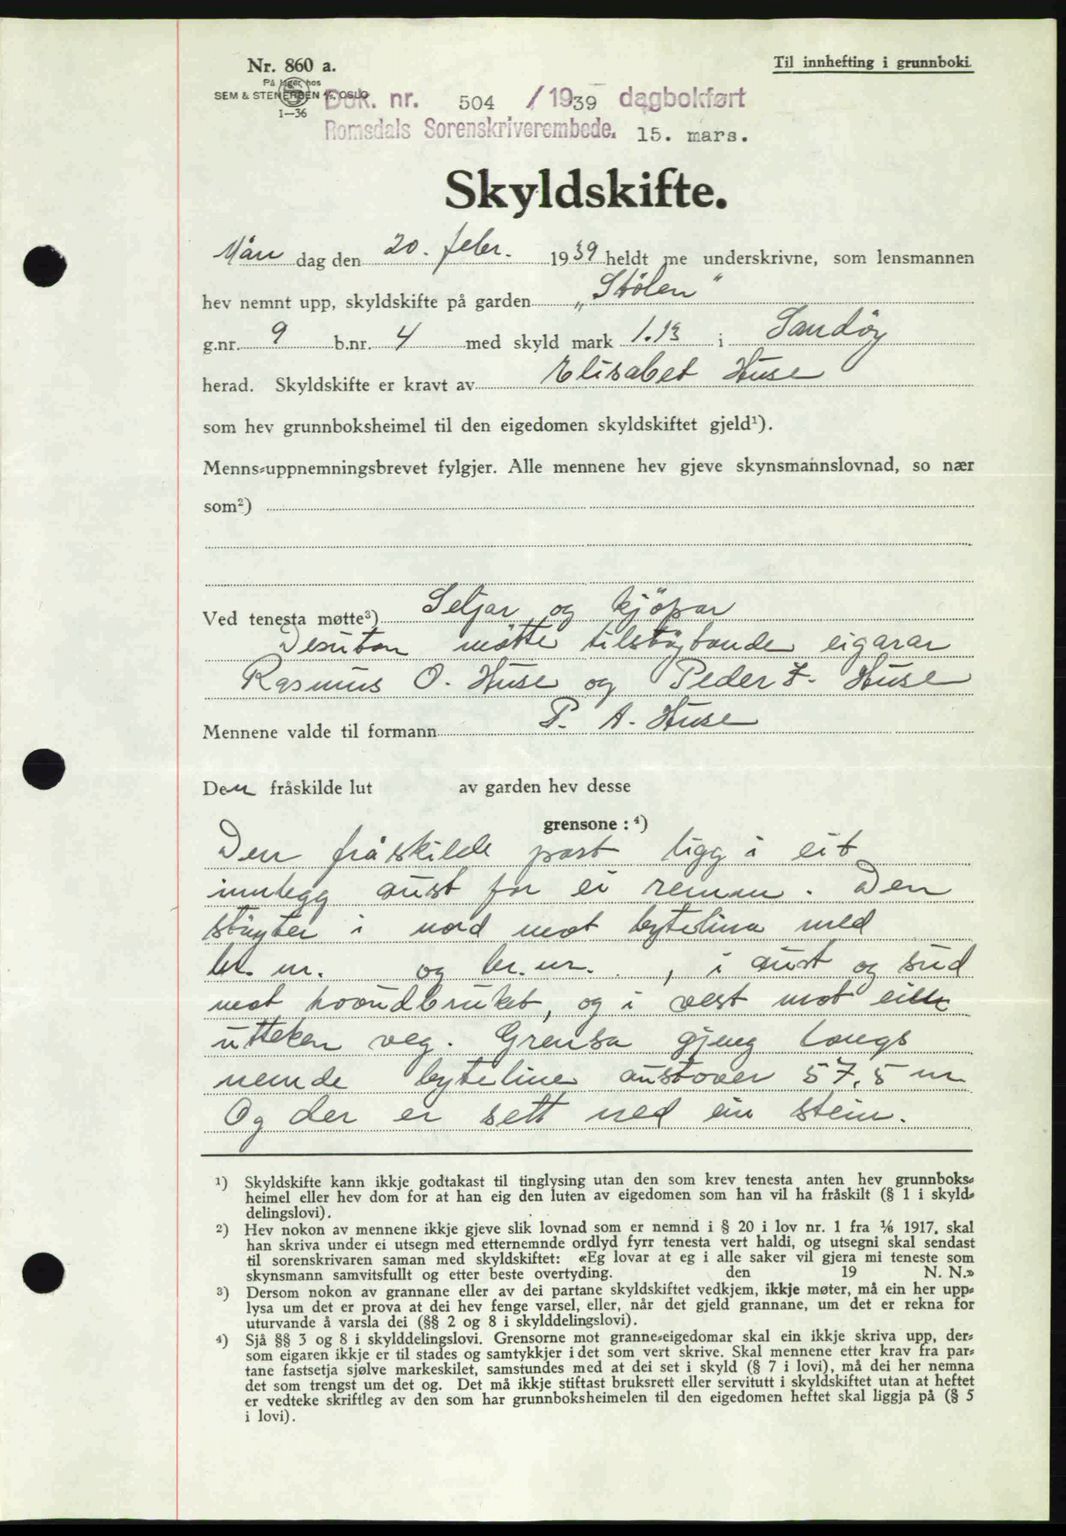 Nr. 860 a.
Til innhefting i grunnboki.
På lager hos
SEM & STENERSEN A/S, OSLO
1—36
Dok. nr. 504 /1939 dagbokført
Romsdals Sorenskriverembede. 15. mars.
Skyldskifte.
Mån dag den 20. febr. 1939 heldt me underskrivne, som lensmannen
hev nemnt upp, skyldskifte på garden „Stölen"
g.nr. 9 b.nr. 4 med skyld mark 1.13 i Sandöy
herad. Skyldskifte er kravt av Elisabet Huse
som hev grunnboksheimel til den eigedomen skyldskiftet gjeld¹).
Menns-uppnemningsbrevet fylgjer. Alle mennene hev gjeve skynsmannslovnad, so nær
som²)
Ved tenesta møtte³) Seljar og kjöpar
Desutan møtte tilstöytande eigarar
Rasmus O. Huse og Peder J. Huse
Mennene valde til formann P. A. Huse
Den fråskilde lut av garden hev desse
grensone : ⁴)
Den fråskilde part ligg i eit
innlegg aust for ei remm. Den
stöyter i nord mot bytelina med
br. nr. og br. nr. , i aust og sud
mot hovudbruket, og i vest mot ein
utteken veg. Grensa gjeng langs
nemde byteline austover 57,5 m
Og der er sett ned ein stein.
¹) Skyldskifte kann ikkje godtakast til tinglysing utan den som krev tenesta anten hev grunnboks-
heimel eller hev dom for at han eig den luten av eigedomen som han vil ha fråskilt (§ 1 i skyld-
delingslovi).
²) Hev nokon av mennene ikkje gjeve slik lovnad som er nemnd i § 20 i lov nr. 1 fra 1/6 1917, skal
han skriva under ei utsegn med etternemnde ordlyd fyrr tenesta vert haldi, og utsegni skal sendast
til sorenskrivaren saman med skyldskiftet: «Eg lovar at eg i alle saker vil gjera mi teneste som
skynsmann samvitsfullt og etter beste overtyding. den 19 N. N.»
³) Dersom nokon av grannane eller av dei partane skyldskiftet vedkjem, ikkje møter, må ein her upp-
lysa um det er prova at dei hev fenge varsel, eller, når det gjeld grannane, um det er rekna for
uturvande å varsla dei (§§ 2 og 8 i skylddelingslovi).
⁴) Sjå §§ 3 og 8 i skylddelingslovi. Grensorne mot granne-eigedomar skal ein ikkje skriva upp, der-
som eigaren ikkje er til stades og samtykkjer i det som vert skrive. Skal mennene etter krav fra par-
tane fastsetja sjølve markeskilet, samstundes med at dei set i skyld (§ 7 i lovi), må dei her nemna
det som trengst um det og. Det må ikkje stiftast bruksrett eller servitutt i skyldskiftet utan at heftet
er vedteke skriftleg av den som har grunnboksheimelen til den eigedomen heftet skal liggja på (§ 5
i lovi).